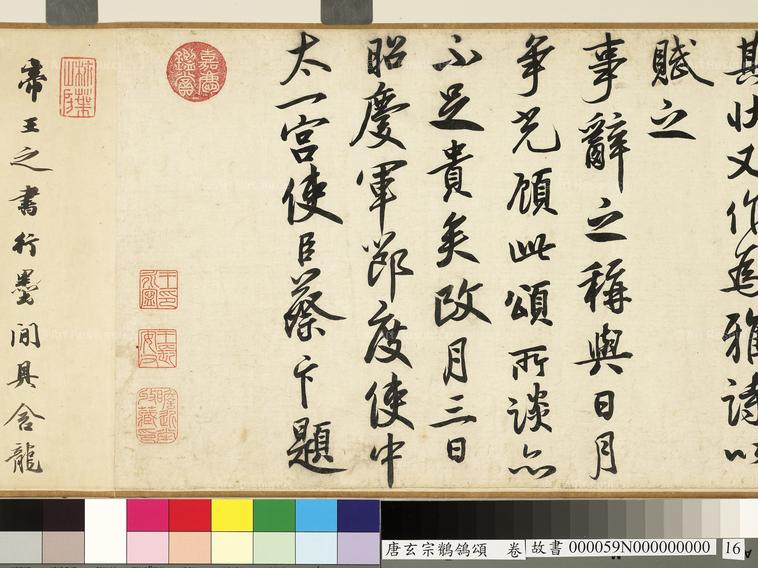 其状又作為雅詩以
賦之
事辭之稱與日月
爭光顧此頌所談亦
不足貴矣政月三日
昭慶軍節度使中
太一宮使臣蔡卞題
嘉慶鑑賞
帝王之書行墨間具含龍
唐玄宗鶺鴒頌 卷 故書 000059N000000000 16